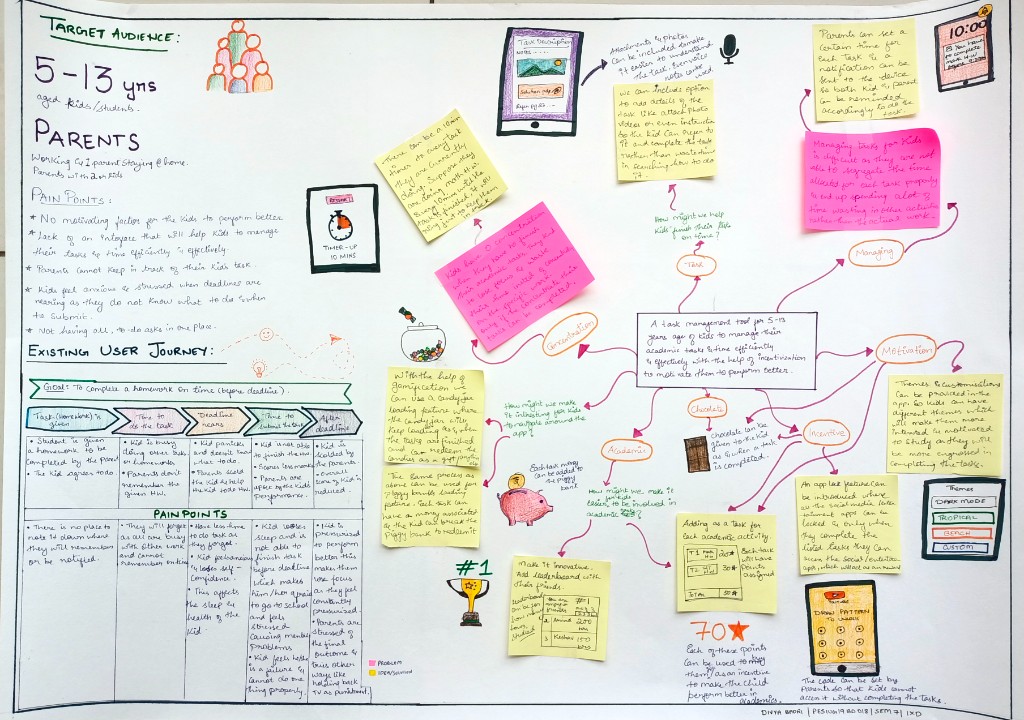 TARGET AUDIENCE:
5-13 yrs
aged kids/students.
PARENTS
Working & 1 parent staying @ home.
Parents with 2 or kids
PAIN POINTS:
* No motivating factor for the kids to perform better
* Lack of an interface that will help kids to manage
their tasks & time efficiently & effectively.
* Parents cannot keep in track of their kids task.
* Kids feel anxious & stressed when deadlines are
nearing as they do not know what to do & when
to submit.
* Not having all, to-do asks in one place.
EXISTING USER JOURNEY:
Goal: To complete a homework on time (beyond deadline).
Task (Homework) is
given
Time to
do the task
Deadline
nears
Time to
submit the task
After
deadline
• Student is given
a homework to be
completed by the parent
• The kid agrees to do
• Kid is busy
doing other task
or homeworks
• Parents don't
remember the
given HW.
• Kid panicks
and doesn't know
what to do.
• Parents scold
the kid & help
the kid to do HW.
• Kid is not able
to finish the HW.
• Scores less marks
• Parents are
upset by the kids
performance.
• Kid is
scolded by
the parents
• Overall score
of kid is
reduced.
PAINPOINTS
• There is no place to
note it down where
they will remember
or be notified.
• They will forget
as all are busy
with other work
and cannot
remember
• Have less time
to do task as
they forgot.
• Kid
loses self-
confidence.
• This affects
the sleep &
health of the
kid.
• Kid loses
sleep and is
not able to
finish task
before deadline
which makes
him/her afraid
to go to school
and feels
stressed
causing mental
problems
• Kid feels he/she
is a failure &
cannot do one
thing properly.
• Kid is
pressurized to
perform better
this make
them lose focus
as they feel
constantly
pressurized.
• Parents are
stressed of
the final
outcome &
tries other
ways like
holding back
TV as punishment.
PROBLEM
IDEA/SOLUTION
RESTART
TIMER-UP
10 MINS
There can be a 10min
timer to every task
they are currently
doing. Suppose they
are doing math then
every 10 mins
Kids have 0 concentration
when they have to finish
their academic tasks. They tend
to lose focus & wander
their time
Concentration
Task Description
Attachments & photos
can be included to make
it easier to understand
the task. Even voice
notes can be used
we can include option
to add details of the
task like attach photos
videos or even instructions
so the kid can refer to
it and complete the task
rather than waste time
in searching how to do
it.
How might we help
kids finish their tasks
on time?
Task
Parents can set a
certain time for
each task & a
notification can be
sent to the device
so both kid & parent
can be reminded
accordingly to do the
task.
10:00
Managing tasks for kids
is difficult as they are not
able to segregate the time
allotted for each task properly
& end up spending alot of
time wasting in other activities
rather than the actual work.
Managing
A task management tool for 5-13
years age of kids to manage their
academic tasks & time efficiently
& effectively with the help of incentivization
to motivate them to perform better.
Motivation
Themes & customisations
can be provided in the
app. So kids can have
different themes which
will make them more
interested & motivated
to study as they will
be more engrossed in
completing the tasks.
Themes
DARK MODE
TROPICAL
BEACH
CUSTOM
Chocolate
chocolate can be
given to the kid
as & when a task
is completed.
Incentive
An app lock feature can
be introduced where
all the social media/enter-
tainment apps can be
locked & only when
they complete the
listed tasks they can
use the social/entertainment
apps, which will act as an reward
DRAW PATTERN
TO UNLOCK
The code can be set by
Parents so that kids cannot
access it without completing the tasks.
With the help of
gamification we
can use a candy jar
loading feature where
the candy jar will
keep loading as & when
the tasks are finished
and can redeem the
candies as a gift/points
The same process as
above can be used for
piggy bank loading
feature. Each task can
have a money associated
& the kid can break the
piggy bank to redeem it
How might we make
it interesting for kids
to navigate around the
app?
Each task money
can be added to
the piggy
bank
Academic
How might we make it
easier for kids
to be involved in
academic
Make it innovative.
Add leaderboard with
their friends.
#1
Adding as a Task for
each academic activity.
TOTAL
Each task
will have
Points
assigned.
70★
Each of these points
can be used to
them/as an incentive
to make the child
perform better in
academics.
DIVYA BADRI | PES1UG19BD018 | SEM 7 | IXD